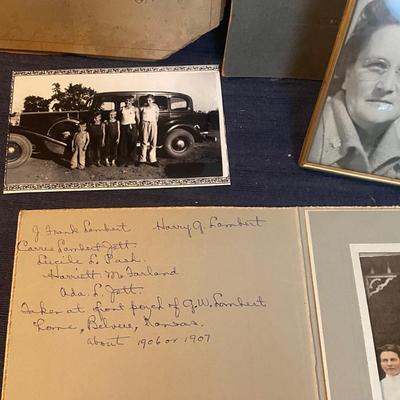 J Frank Lambert Harry G. Lambert
Carrie Lambert Jett
Lucile L. Pash
Harriett McFarland
Ada L. Jett
Taken at front porch of G.W. Lambert
home, Belvue, Kansas.
about 1906 or 1907